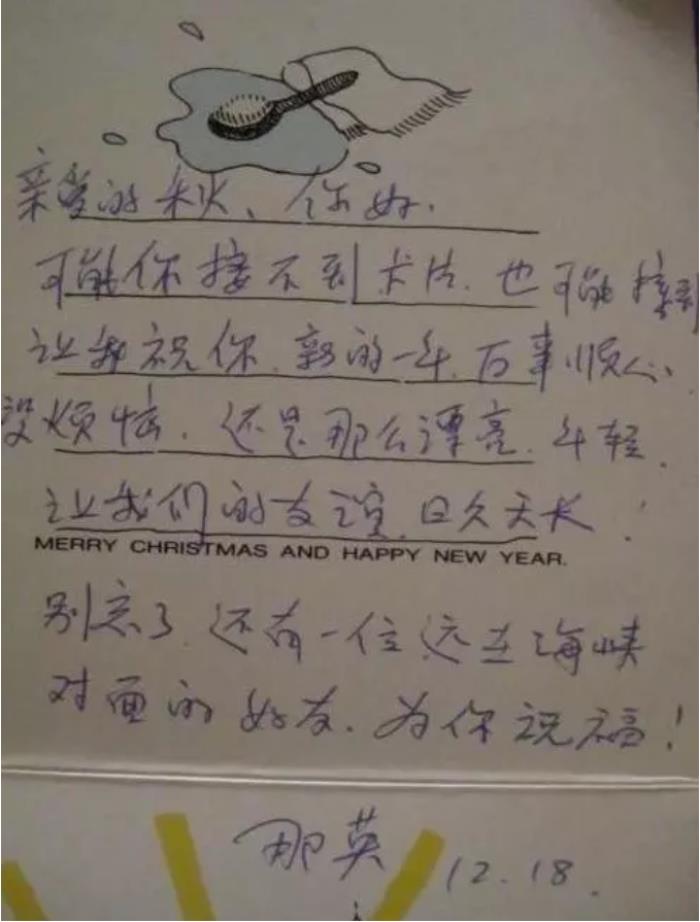 亲爱的秋、你好.
可能你接不到卡片.也可能接到
让我祝你.新的一年.万事顺心.
没烦恼.还是那么漂亮.年轻.
让我们的友谊.日久天长!
MERRY CHRISTMAS AND HAPPY NEW YEAR.
别忘了.还有一位远在海峡
对面的好友.为你祝福!
那英 12.18.